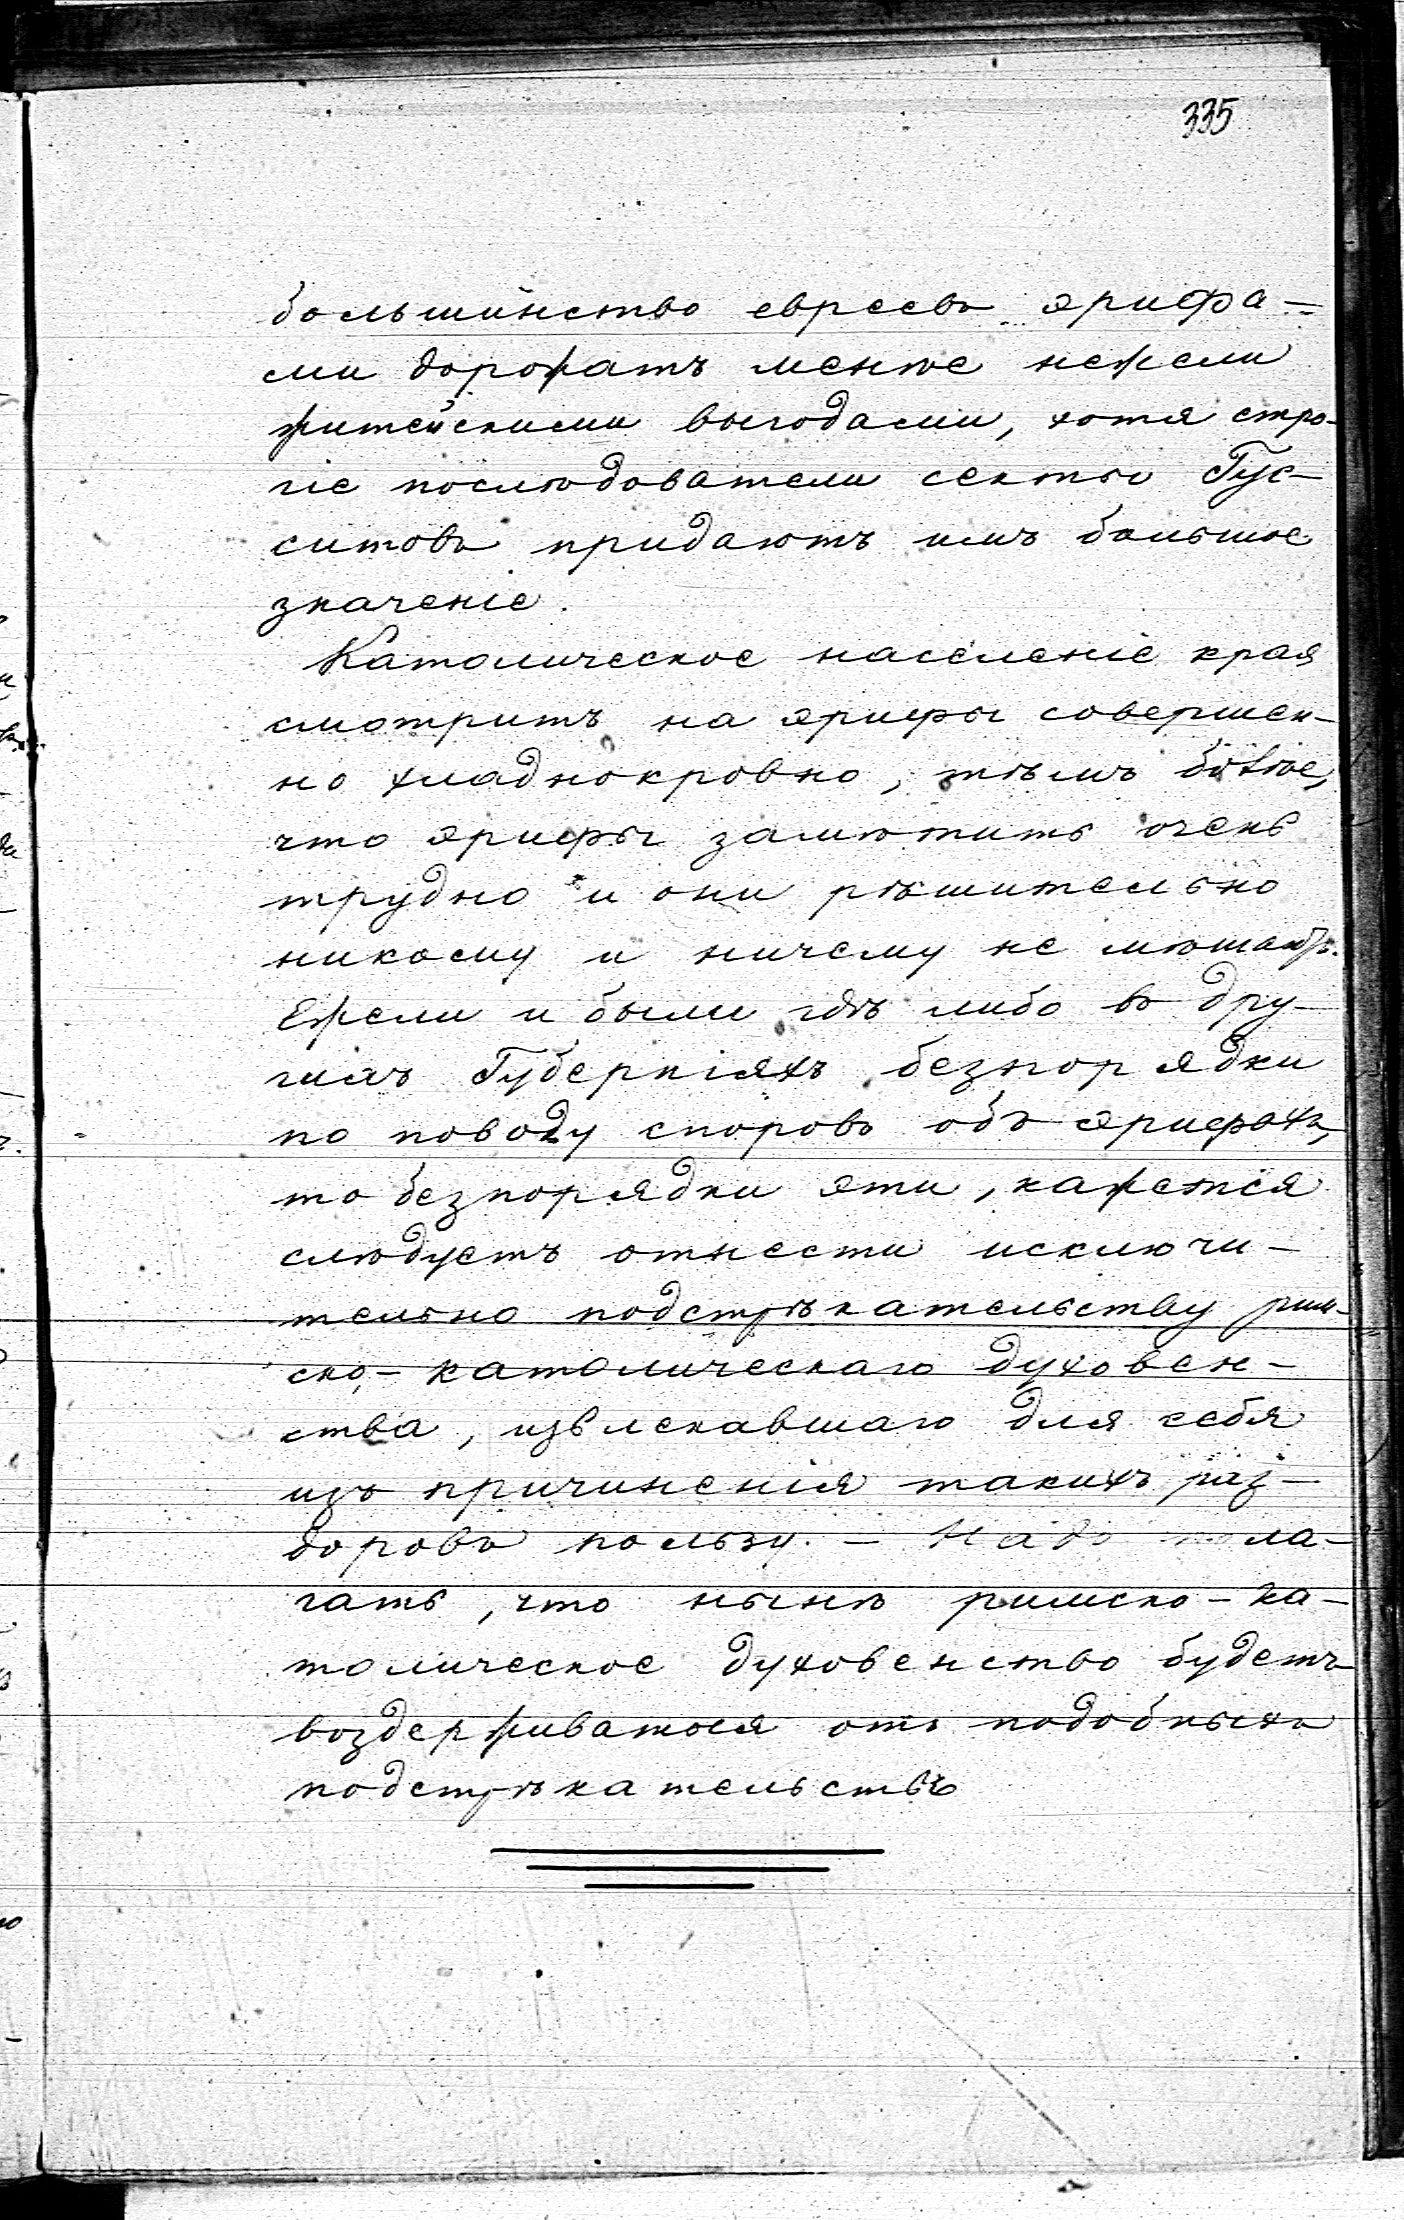 335
большинство евреевъ эрифа-
ми дорожатъ менѣе нежели
житейскими выгодами, хотя стро-
гіе послѣдователи секты Гус-
ситовъ придаютъ имъ большое
значеніе.
Католическое населеніе края
смотритъ на эрифы совершен-
но хладнокровно, тѣмъ болѣе,
что эрифы замѣтить очень
трудно и они рѣшительно
никому и ничему не мѣшаютъ.
Ежели и были гдѣ либо въ дру-
гихъ Губерніяхъ безпорядки
по поводу споровъ объ эрифахъ,
то безпорядки эти, кажется
слѣдуетъ отнести исключи-
тельно подстрѣкательству рим-
ско-католическаго духовен-
ства, извлекавшаго для себя
изъ причиненія такихъ раз-
доровъ пользу. – Надо пола-
гать, что нынѣ римско-ка-
толическое духовенство будетъ
воздерживатся отъ подобныхъ
подстрѣкательствъ